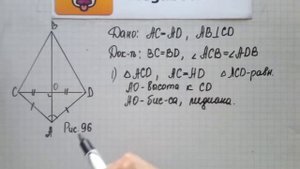 B
Дано: AC=AD, AB⊥CD
Док-ть: BC=BD, ∠ACB=∠ADB
1) △ACD, AC=AD △ACD-равн.
AO-высота к CD
AO-бис-са, медиана.
C O D
A
Рис. 96